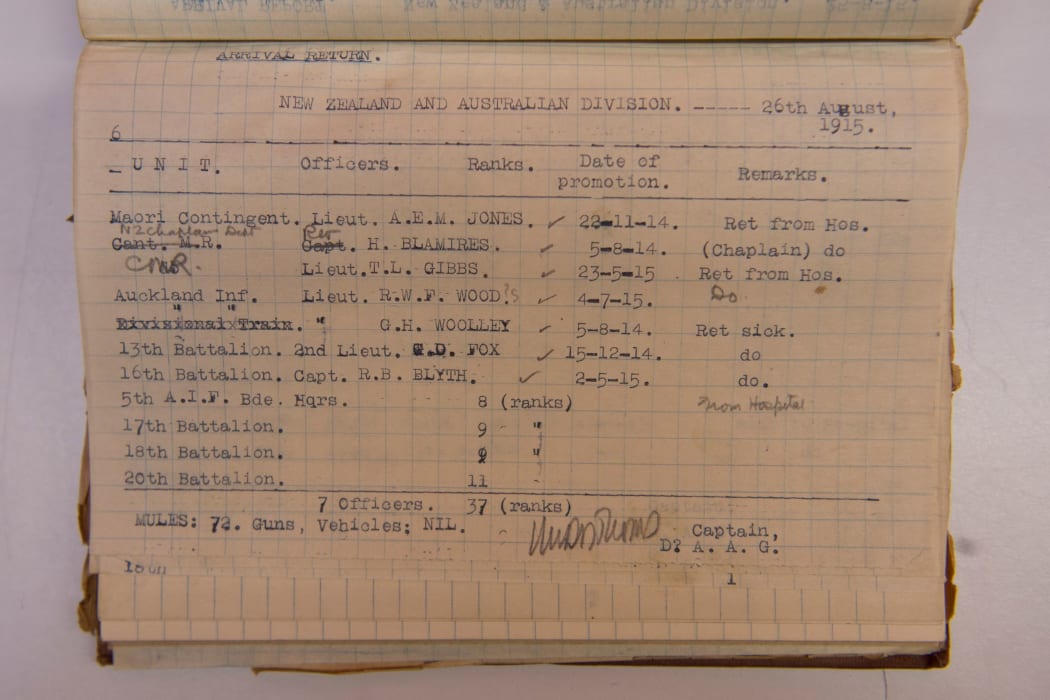 ARRIVAL REPORT. New Zealand & Australian Division. 25-8-15.
ARRIVAL RETURN.
NEW ZEALAND AND AUSTRALIAN DIVISION. ----- 26th August,
1915.
6
U N I T. Officers. Ranks. Date of promotion. Remarks.
Maori Contingent. Lieut. A.E.M. JONES. ✓ 22-11-14. Ret from Hos.
NZ Chaplain Dept Rev
Cant. M.R. Capt. H. BLAMIRES. ✓ 5-8-14. (Chaplain) do
CMR. Lieut. T.L. GIBBS. ✓ 23-5-15 Ret from Hos.
Auckland Inf. Lieut. R.W.F. WOOD?s ✓ 4-7-15. Do.
" "
Divisional Train. " G.H. WOOLLEY ✓ 5-8-14. Ret sick.
13th Battalion. 2nd Lieut. G.D. FOX ✓ 15-12-14. do
16th Battalion. Capt. R.B. BLYTH. ✓ 2-5-15. do.
5th A.I.F. Bde. Hqrs. 8 (ranks) From Hospital
17th Battalion. 9 - "
18th Battalion. 9 "
20th Battalion. 11 -
7 Officers. 37 (ranks)
MULES: 72. Guns, Vehicles; NIL.
Captain,
D? A. A. G.
18th
1